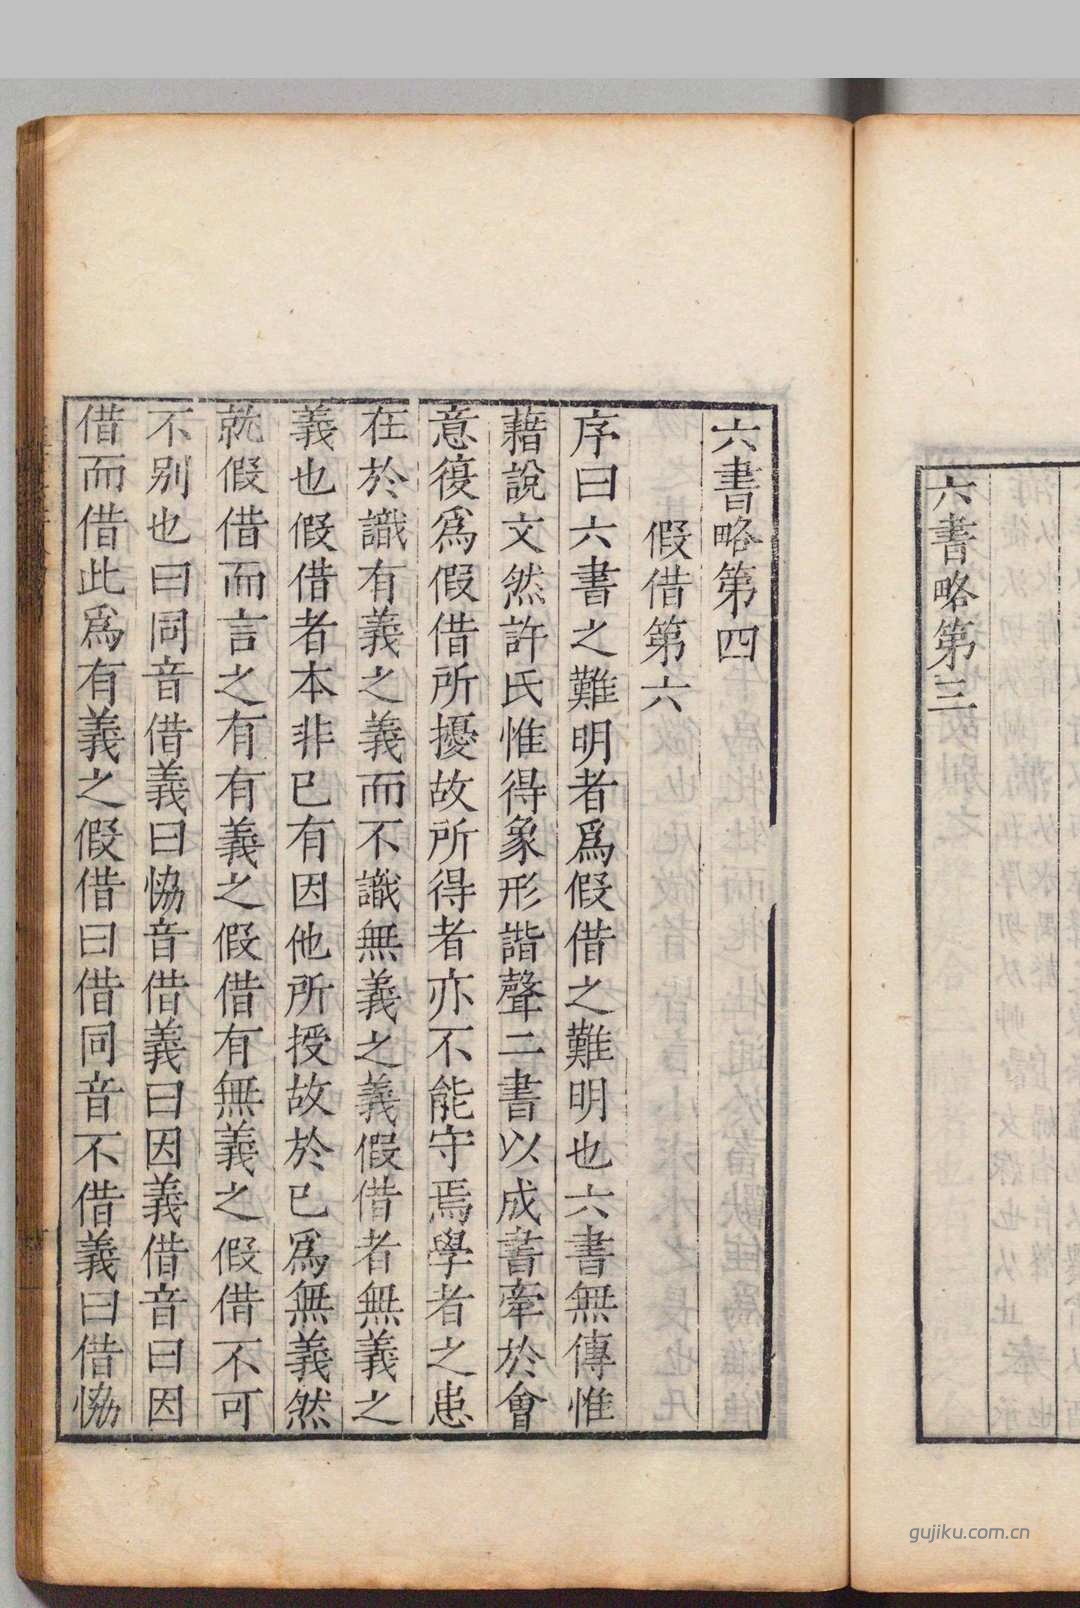 六書略第三
六書略第四
假借第六
序曰六書之難明者爲假借之難明也六書無傳惟
藉說文然許氏惟得象形諧聲二書以成書牽於會
意復爲假借所擾故所得者亦不能守焉學者之患
在於識有義之義而不識無義之義假借者無義之
義也假借者本非已有因他所授故於已爲無義然
就假借而言之有有義之假借有無義之假借不可
不別也曰同音借義曰恊音借義曰因義借音曰因
借而借此爲有義之假借曰借同音不借義曰借恊
gujiku.com.cn